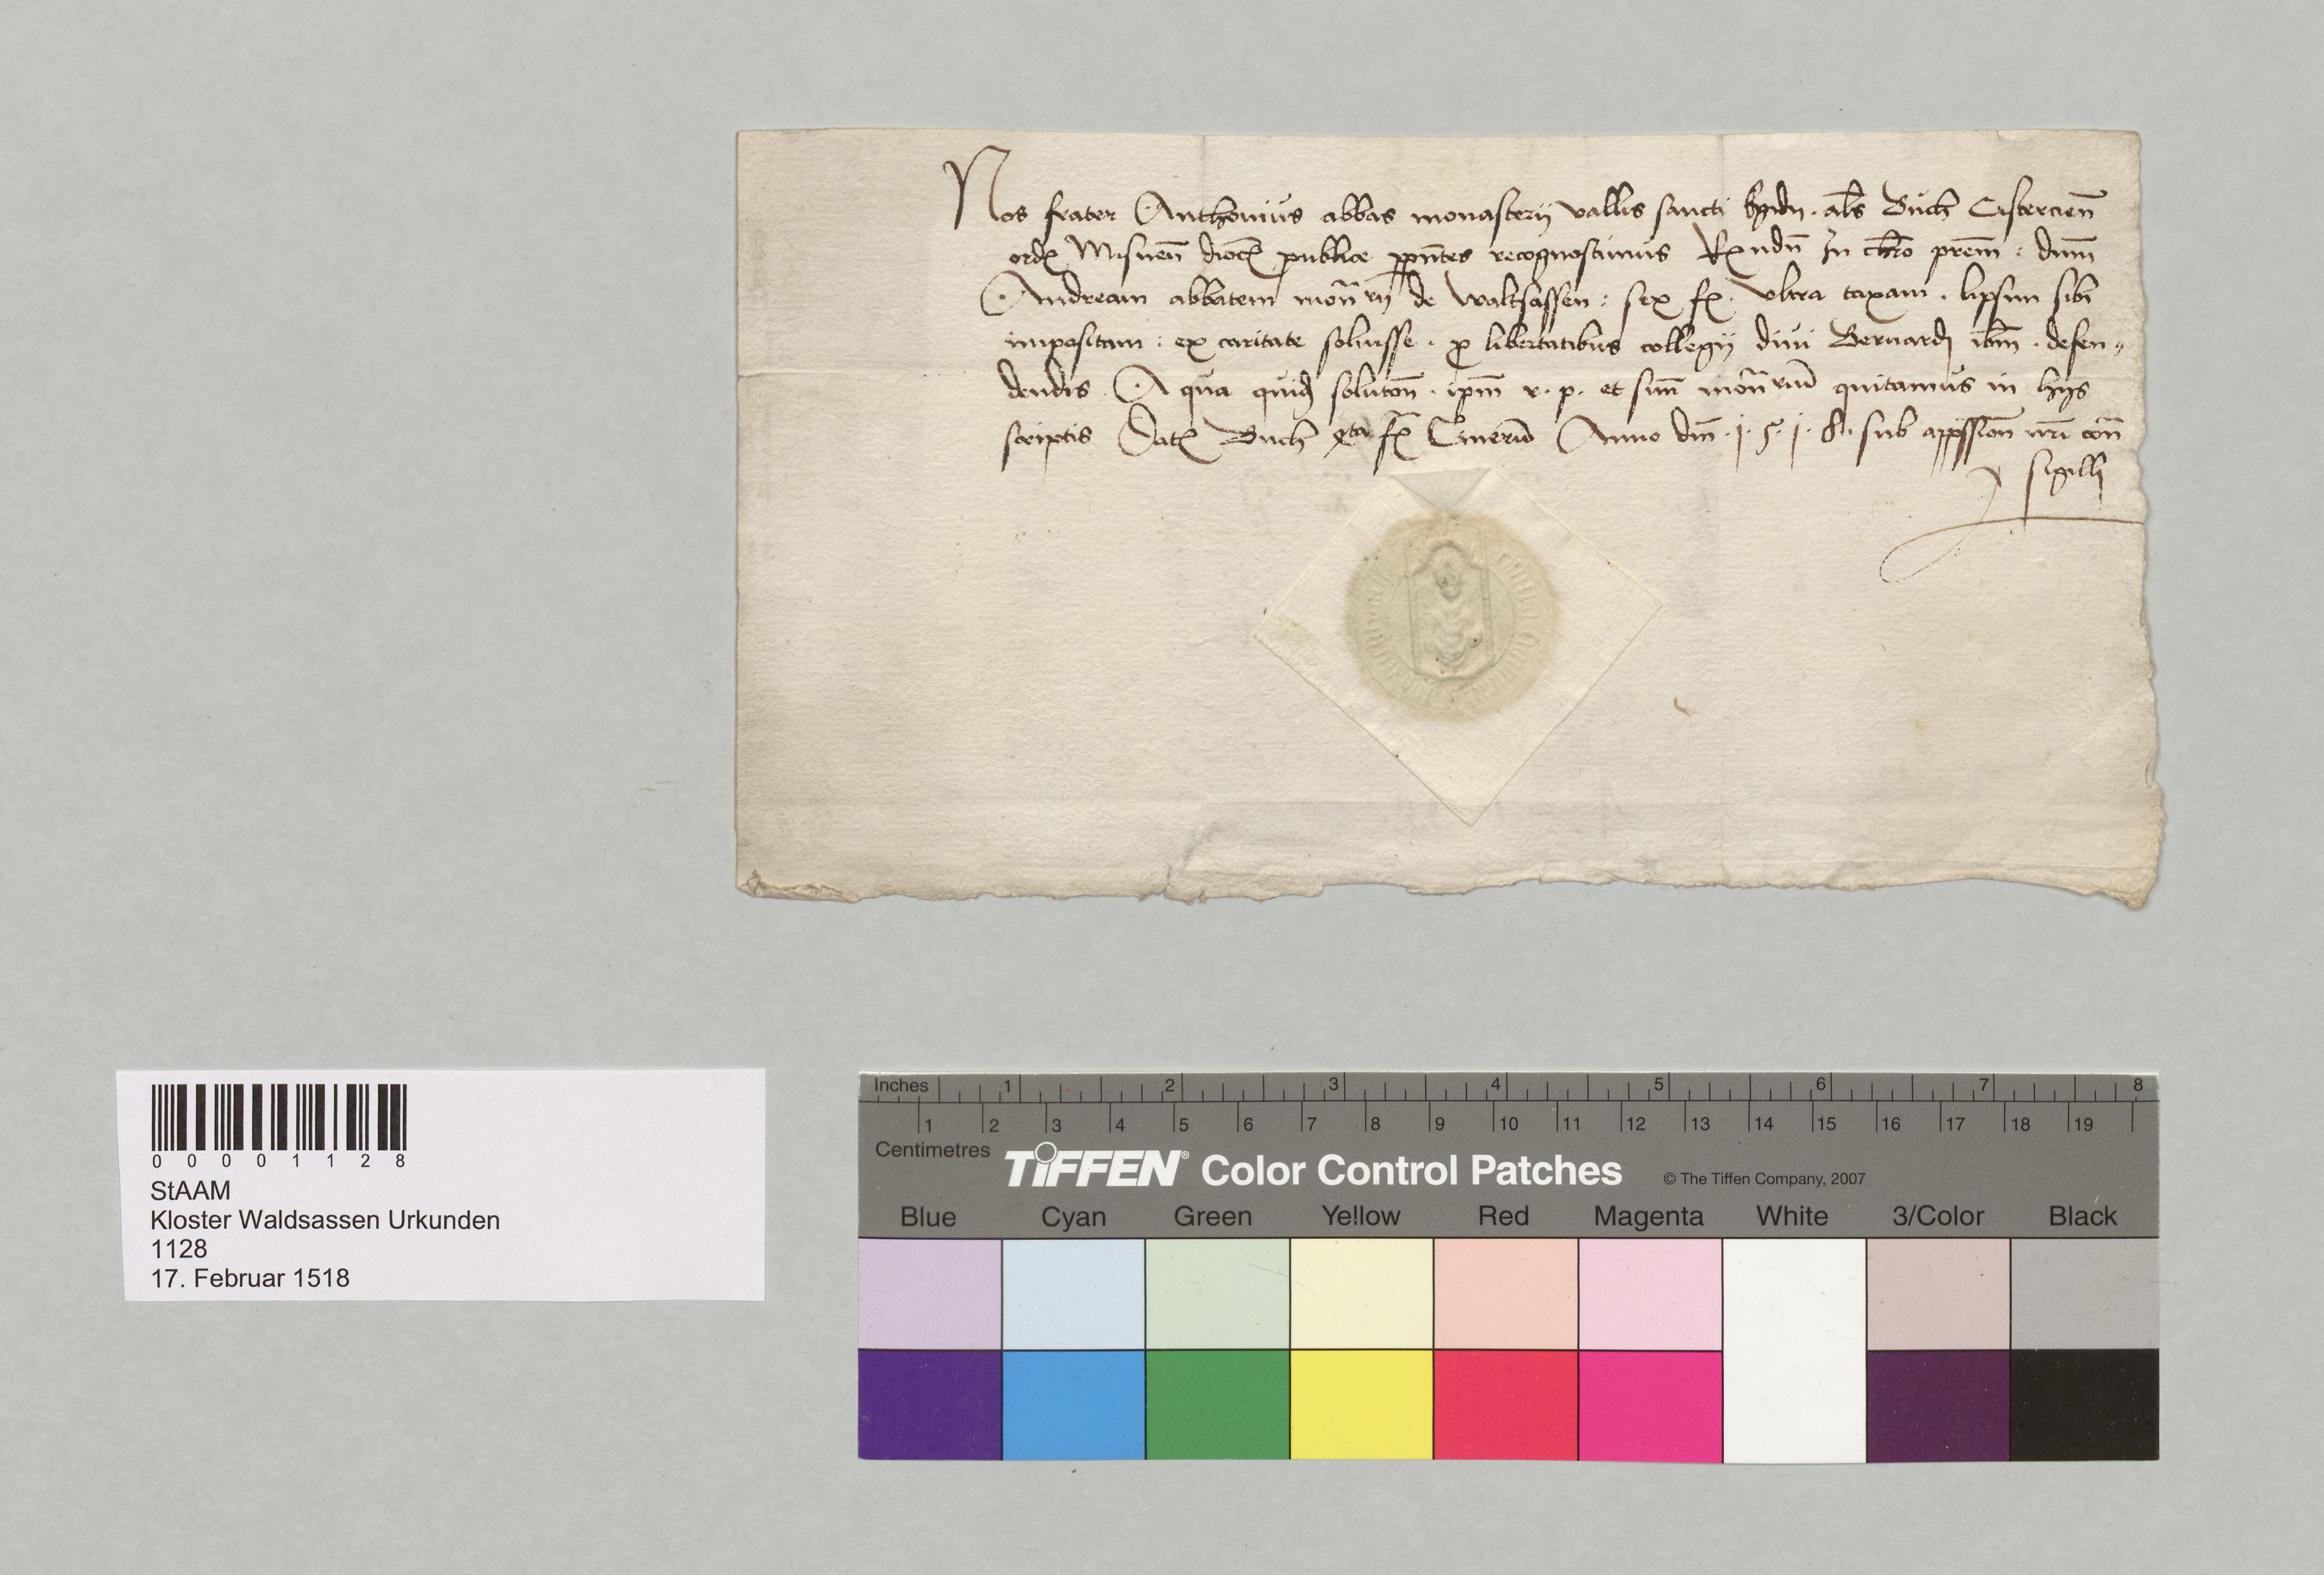 Nos frater Anthonius abbas monasterij vallis sancti Egidij . als Buch Cistercien
ordis Misnen dioc publice ppntes recognoscimus Rxndn In chro prem : dnm
Andream abbatem monrij de waltsassen : sex fl . vltra taxam . lipsnn sibi
impositam : ex caritate soluisse . p libertatibus collegij diui Bernardi ibm . defen„
dendis . A qua quidem soluton . ipm r . p . et suu monriu quitamus in hijs
scriptis Dat Buch qta f Cineru Anno dni . j . 5 . j . 8 . sub apprssion nri con
sigilli
0 0 0 0 1 1 2 8
StAAM
Kloster Waldsassen Urkunden
1128
17. Februar 1518
Inches 1 2 3 4 5 6 7 8
1 2 3 4 5 6 7 8 9 10 11 12 13 14 15 16 17 18 19
Centimetres
TIFFEN® Color Control Patches © The Tiffen Company, 2007
Blue Cyan Green Yellow Red Magenta White 3/Color Black